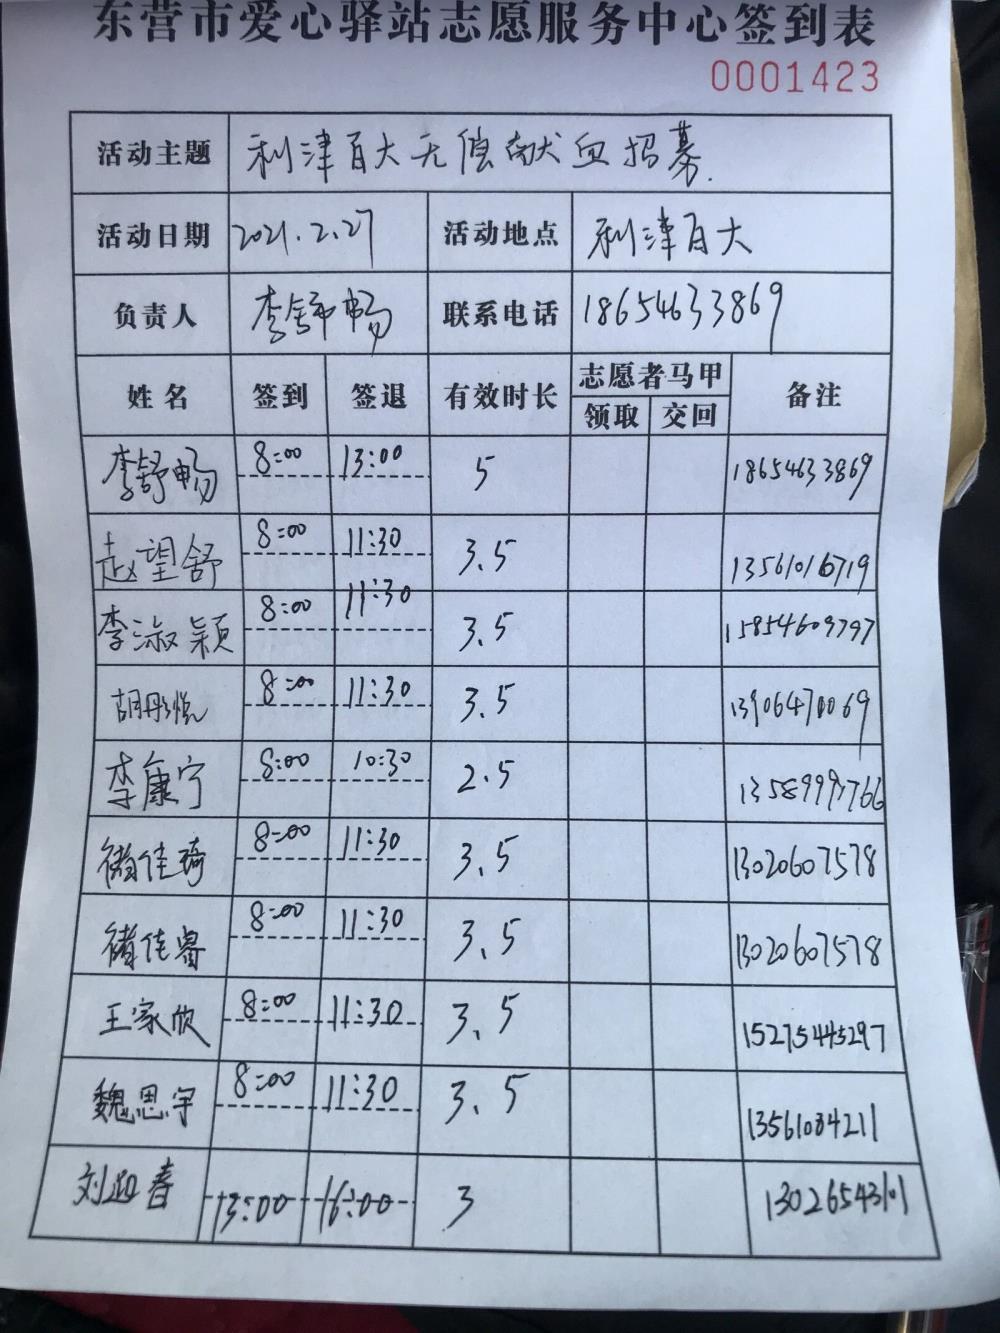 东营市爱心驿站志愿服务中心签到表
0001423
活动主题 利津百大无偿献血招募.
活动日期 2021.2.27 活动地点 利津百大
负责人 李舒畅 联系电话 18654633869
姓名 签到 签退 有效时长 志愿者马甲 备注
领取 交回
李舒畅 8:00 13:00 5 18654633869
赵望舒 8:00 11:30 3.5 13561016719
李淑颖 8:00 11:30 3.5 15854609797
胡彤悦 8:00 11:30 3.5 13906470069
李康宁 8:00 10:30 2.5
褚佳琦 8:00 11:30 3.5 13020607578
褚佳睿 8:00 11:30 3.5 13020607578
王家欣 8:00 11:30 3.5 15275445297
魏思宇 8:00 11:30 3.5 13561084211
刘迎春 13:00 16:00 3 13026543101